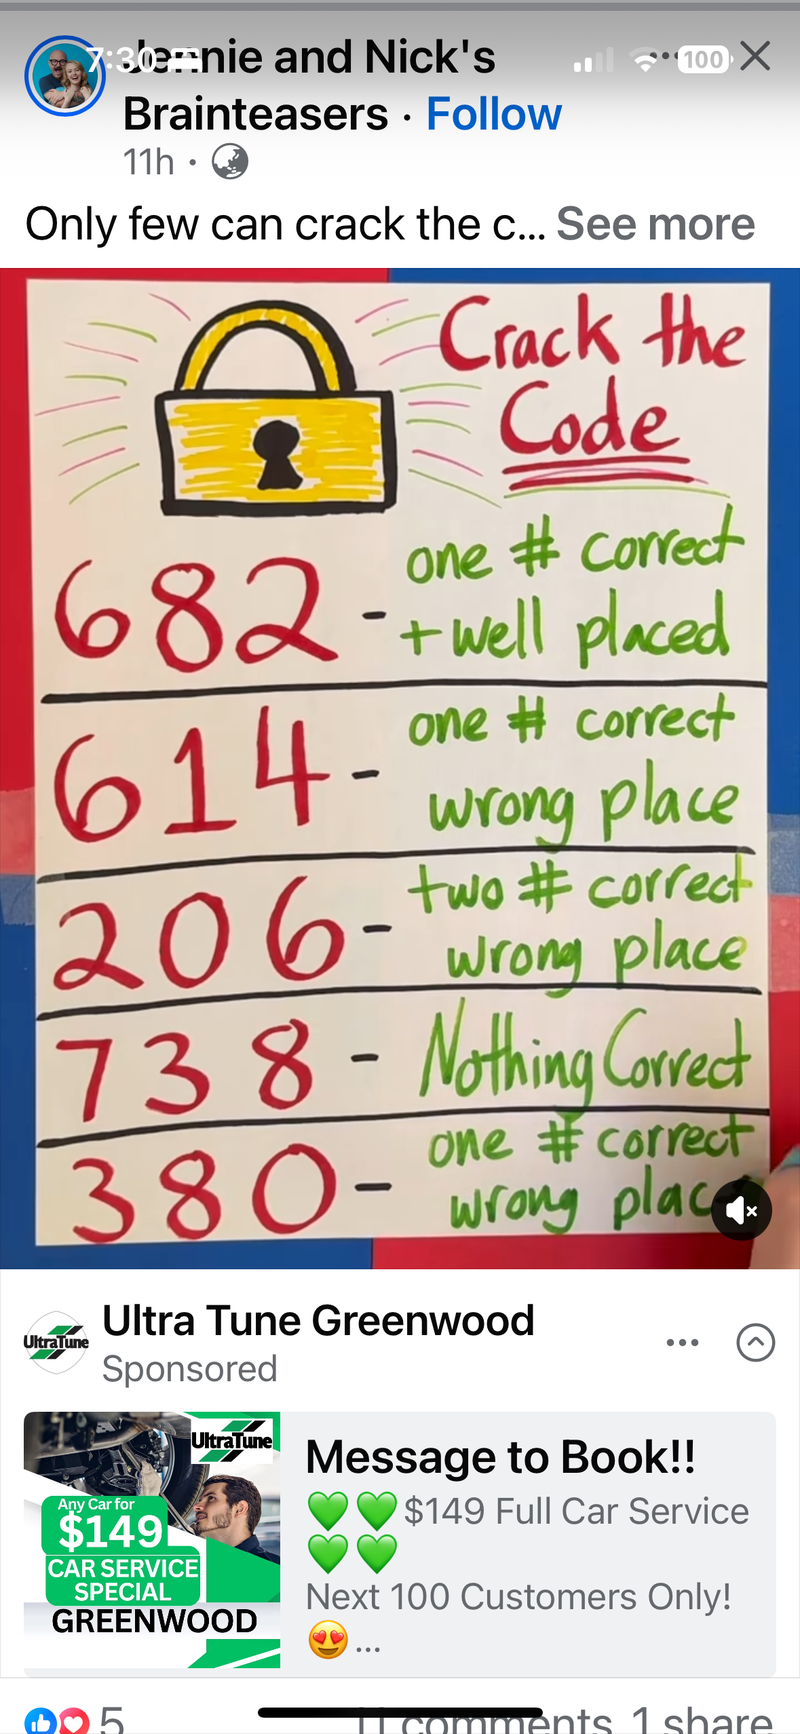 7:30
Jennie and Nick's
100
Brainteasers · Follow
11h ·
Only few can crack the c... See more
Crack the
Code
682 - one # correct
+ well placed
614 - one # correct
wrong place
206 - two # correct
wrong place
738 - Nothing Correct
380 - one # correct
wrong plac
UltraTune
Ultra Tune Greenwood
Sponsored
UltraTune
Any Car for
$149
CAR SERVICE
SPECIAL
GREENWOOD
Message to Book!!
💚💚$149 Full Car Service
💚💚
Next 100 Customers Only!
😍...
5
11 comments 1 share